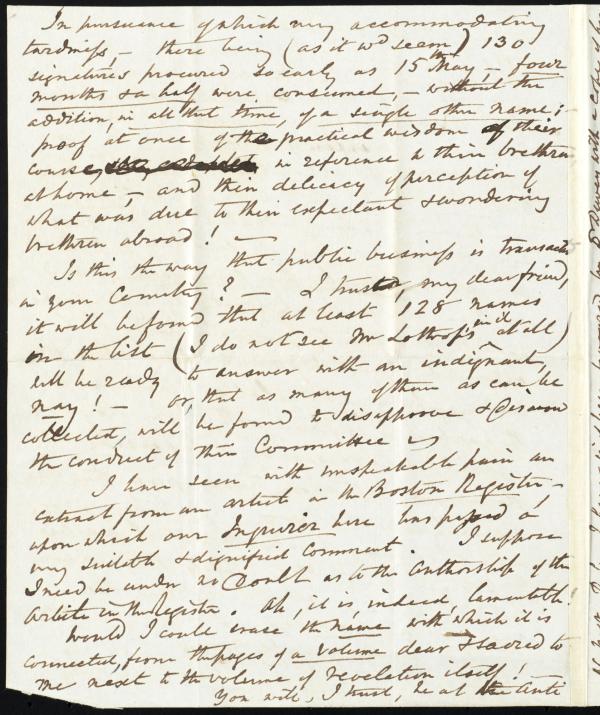 In pursuance of which very accommodating
tardiness, — there being (as it wd seem) 130
signatures procured so early as 15th May, — four
months & a half were consumed, — without the
addition, in all that time, of a single other name;
proof at once of the practical wisdom of their
course, in reference to their brethren
at home, — and their delicacy of perception of
what was due to their expectant & wondering
brethren abroad! —
Is this the way that public business is transacted
in your Country? — I trust, my dear friend,
it will be found that at least 128 names
in the list (I do not see Mr Lothrop's in it at all)
will be ready to answer with an indignant,
nay! — or, that as many of them as can be
collected, will be found to disapprove & disavow
the conduct of their Committee
I have seen with unspeakable pain an
extract from an article in the Boston Register,
upon which our Inquirer here has passed a
very suitable & dignified comment. I suppose
I need be under no doubt as to the authorship of the
article in the Register. Ah, it is, indeed, lamentable!
Would I could erase the name with which it is
connected, from the pages of a volume dear & sacred to
me next to the volume of revelation itself!
You will, I trust, be at the Anti